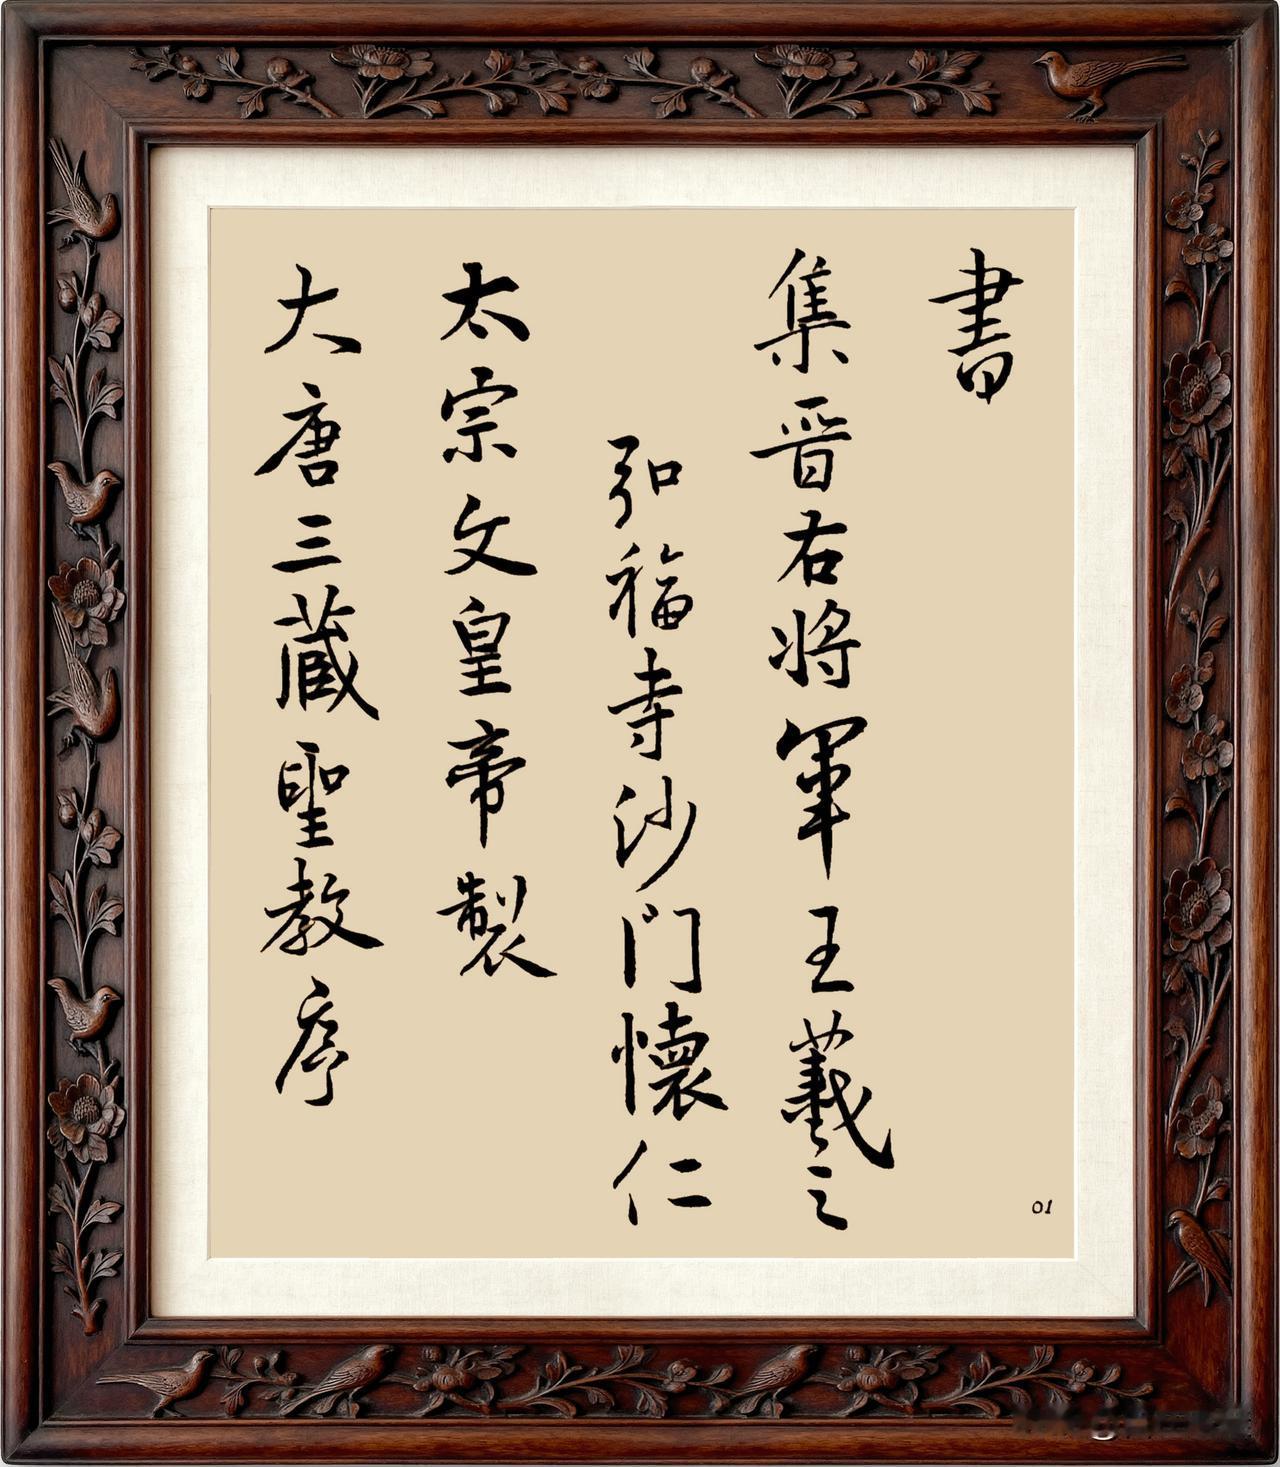 大唐三藏聖教序
太宗文皇帝製
弘福寺沙門懷仁
集晉右將軍王羲之
書
01